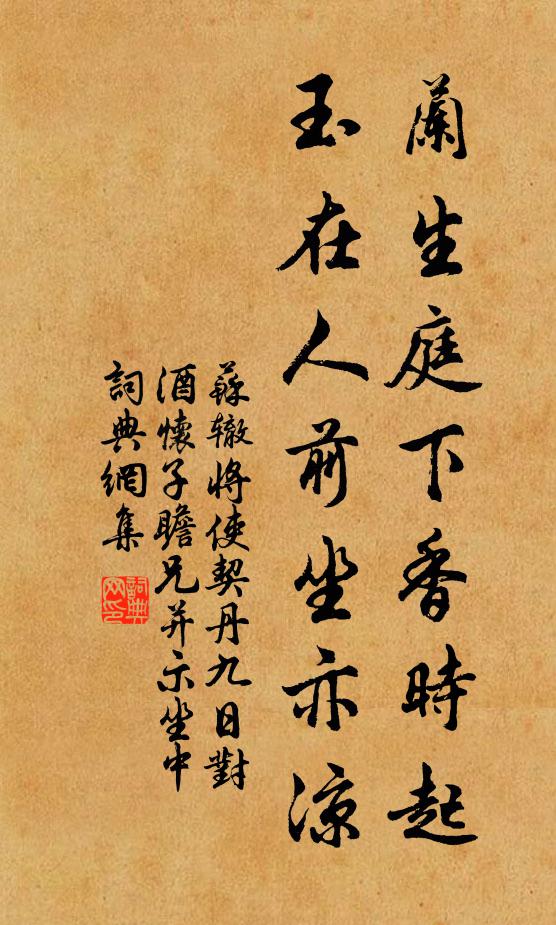 蘭生庭下香時起
玉在人前坐亦涼
蘇轍將使契丹九日對
酒懷子瞻兄并示坐中
詞典網集
詞典
网印